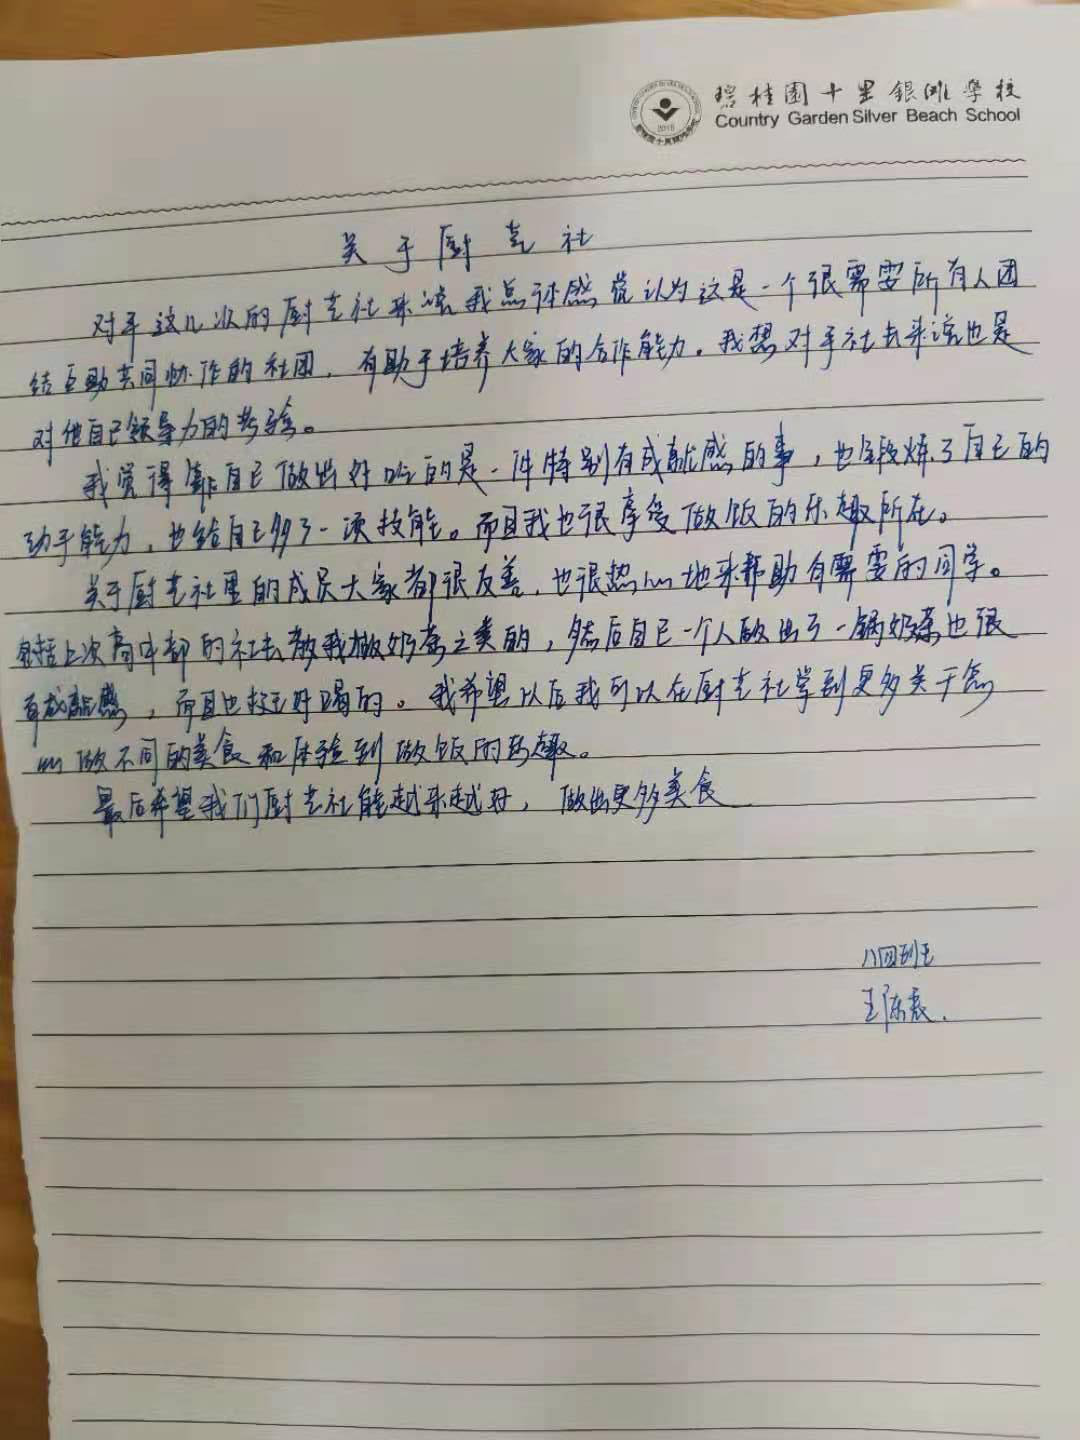 碧桂園十里銀灘學校
Country Garden Silver Beach School
2015
关于厨艺社
对于这几次的厨艺社来说我总体感觉认为这是一个很需要所有人团
结互助共同协作的社团，有助于培养大家的合作能力。我想对于社长来说也是
对他自己领导力的考验。
我觉得靠自己做出好吃的是一件特别有成就感的事，也会锻炼了自己的
动手能力，也给自己多了一项技能。而且我也很享受做饭的乐趣所在。
关于厨艺社里的成员大家都很友善，也很热心地来帮助有需要的同学。
包括上次高中部的社长教我做奶茶之类的，然后自己一个人做出了一锅奶茶也很
有成就感，而且也挺好喝的。我希望以后我可以在厨艺社学到更多关于怎
么做不同的美食和体验到做饭的乐趣。
最后希望我们厨艺社能越来越好，做出更多美食
八四班
王